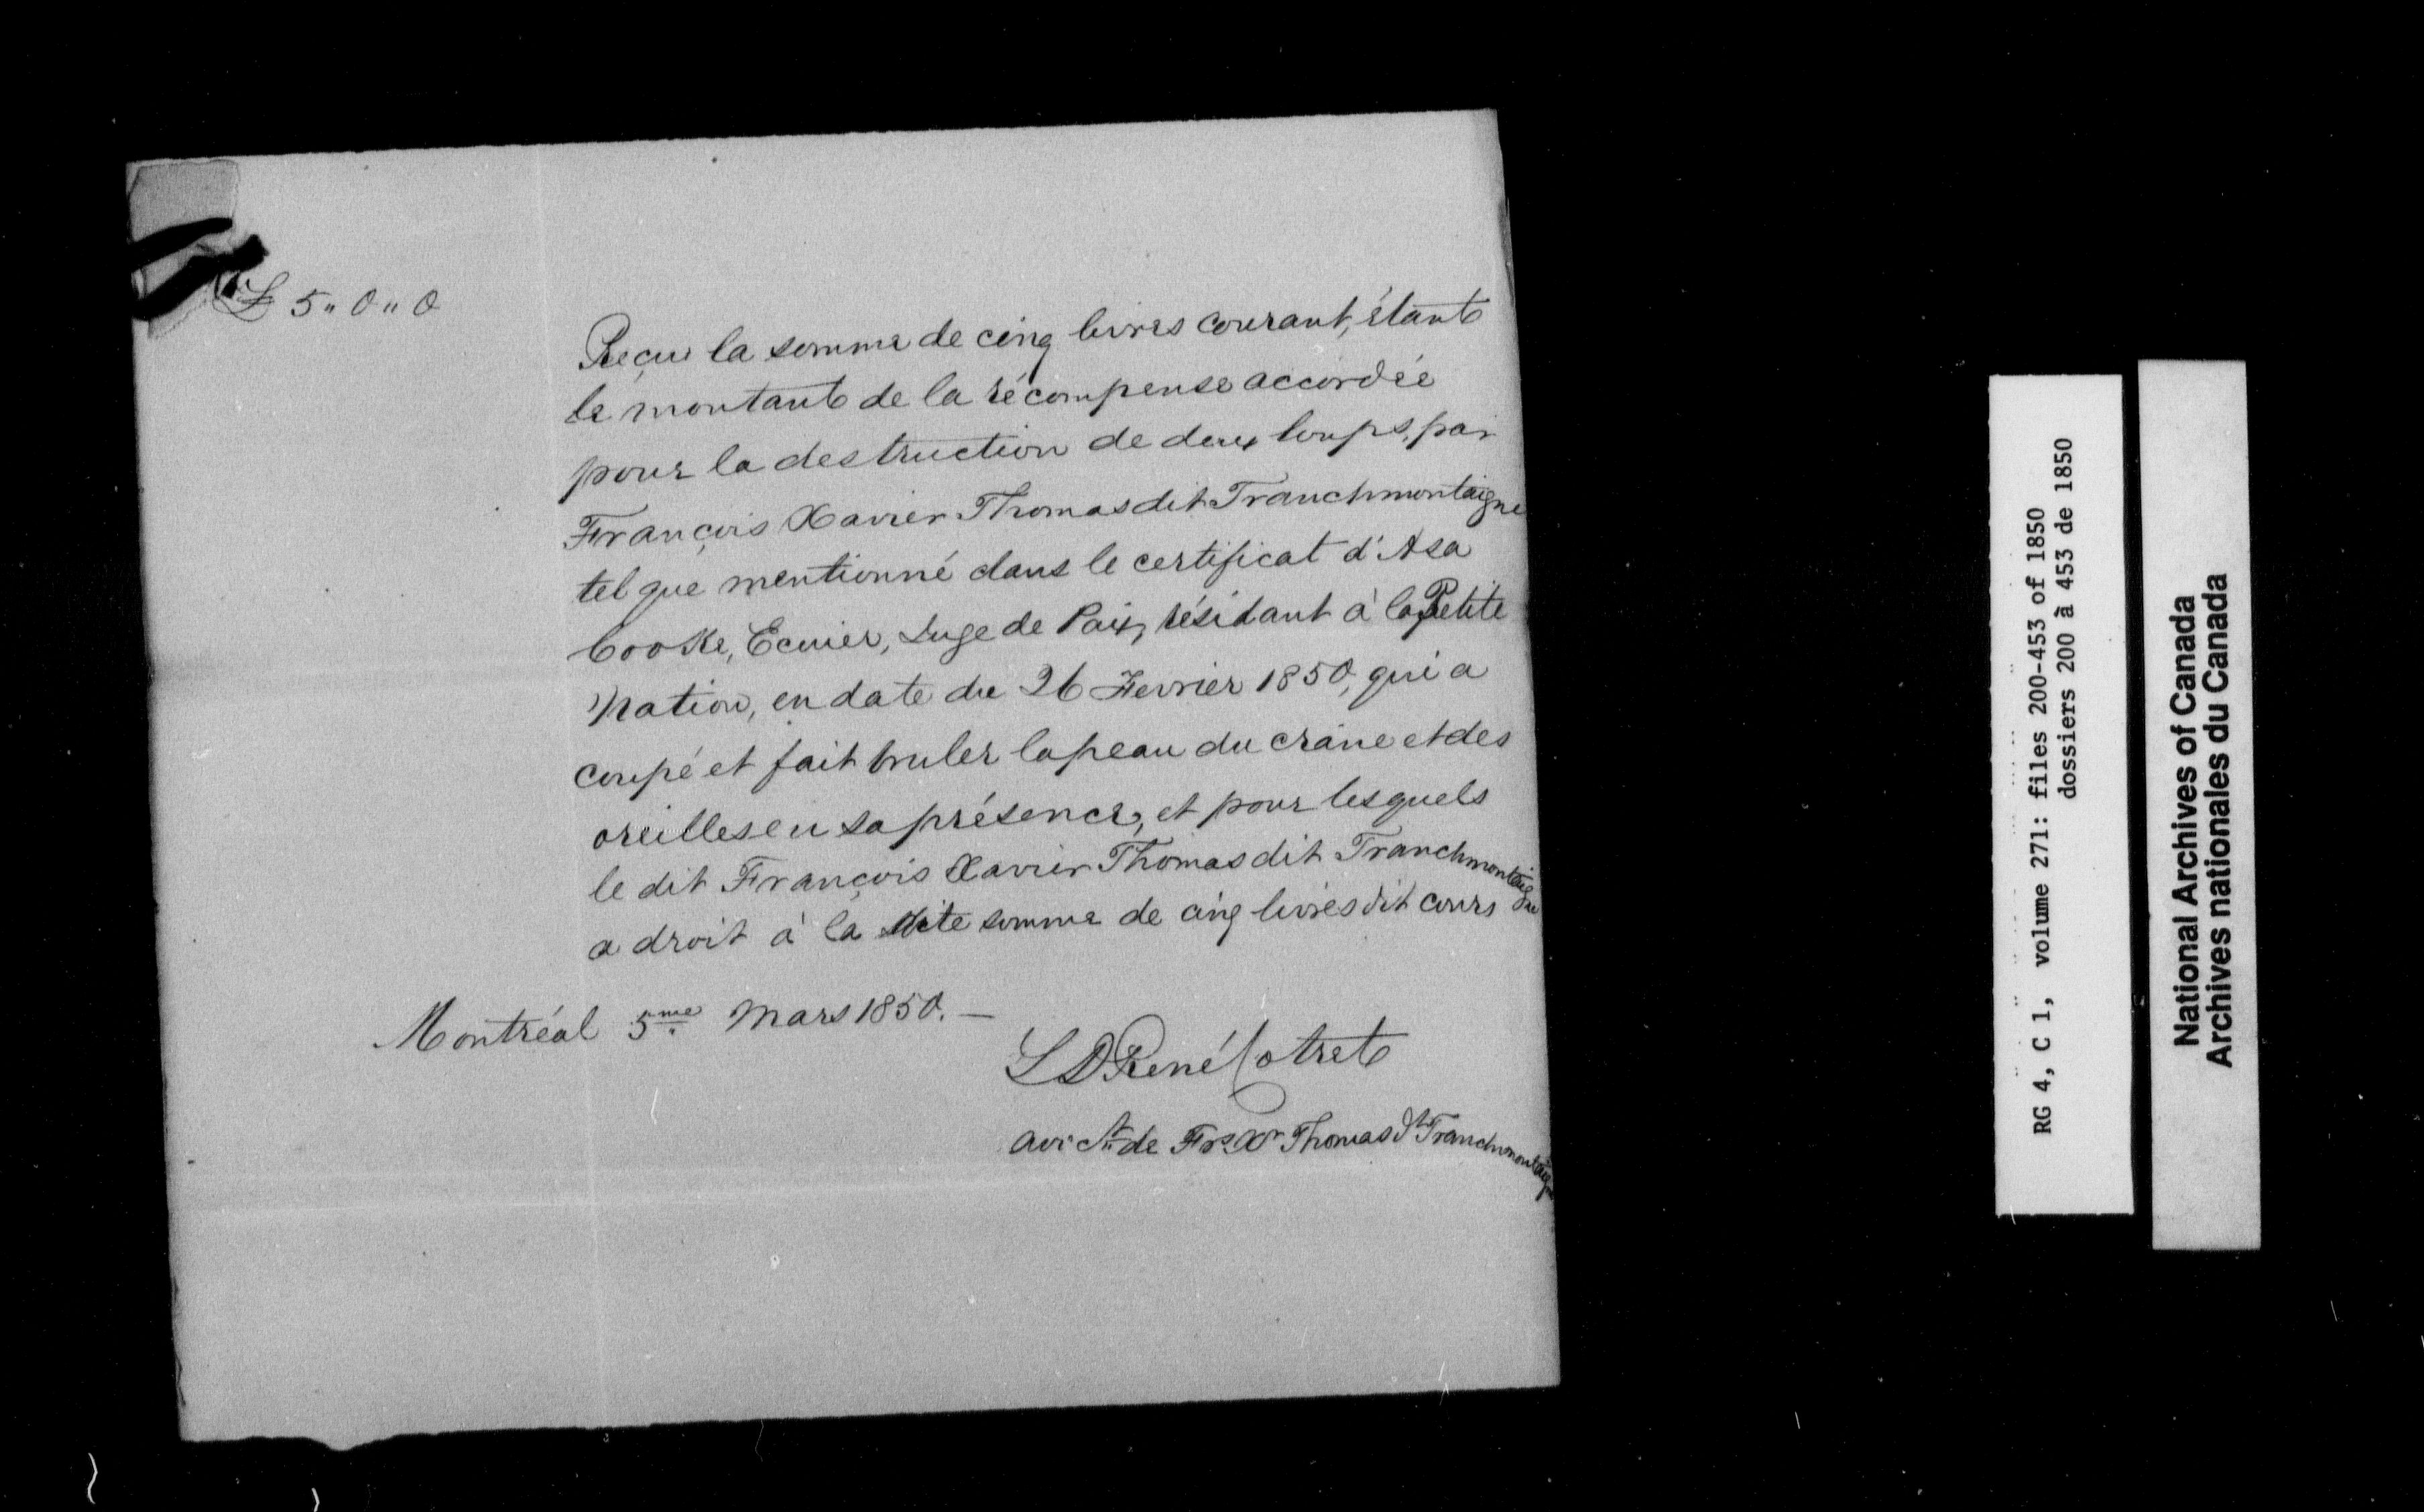 £ 5 " 0 " 0
Reçu la somme de cinq livres courant, étant
le montant de la récompense accordée
pour la destruction de deux loups, par
François Xavier Thomas dit Tranchmontaigne
tel que mentionné dans le certificat d'Asa
Cooke, Ecuier, Juge de Paix, résidant à la Petite
Nation, en date du 26 Fevrier 1850, qui a
coupé et fait bruler la peau du crâne et des
oreilles en sa présence, et pour lesquels
le dit François Xavier Thomas dit Tranchmontaigne
a droit à la dite somme de cinq livres dit cours
Montréal 5me Mars 1850. —
L D René Cotret
de Frs Xr Thomas dt Tranchmontaigne
RG 4, C 1, volume 271: files 200-453 of 1850
dossiers 200 à 453 de 1850
National Archives of Canada
Archives nationales du Canada